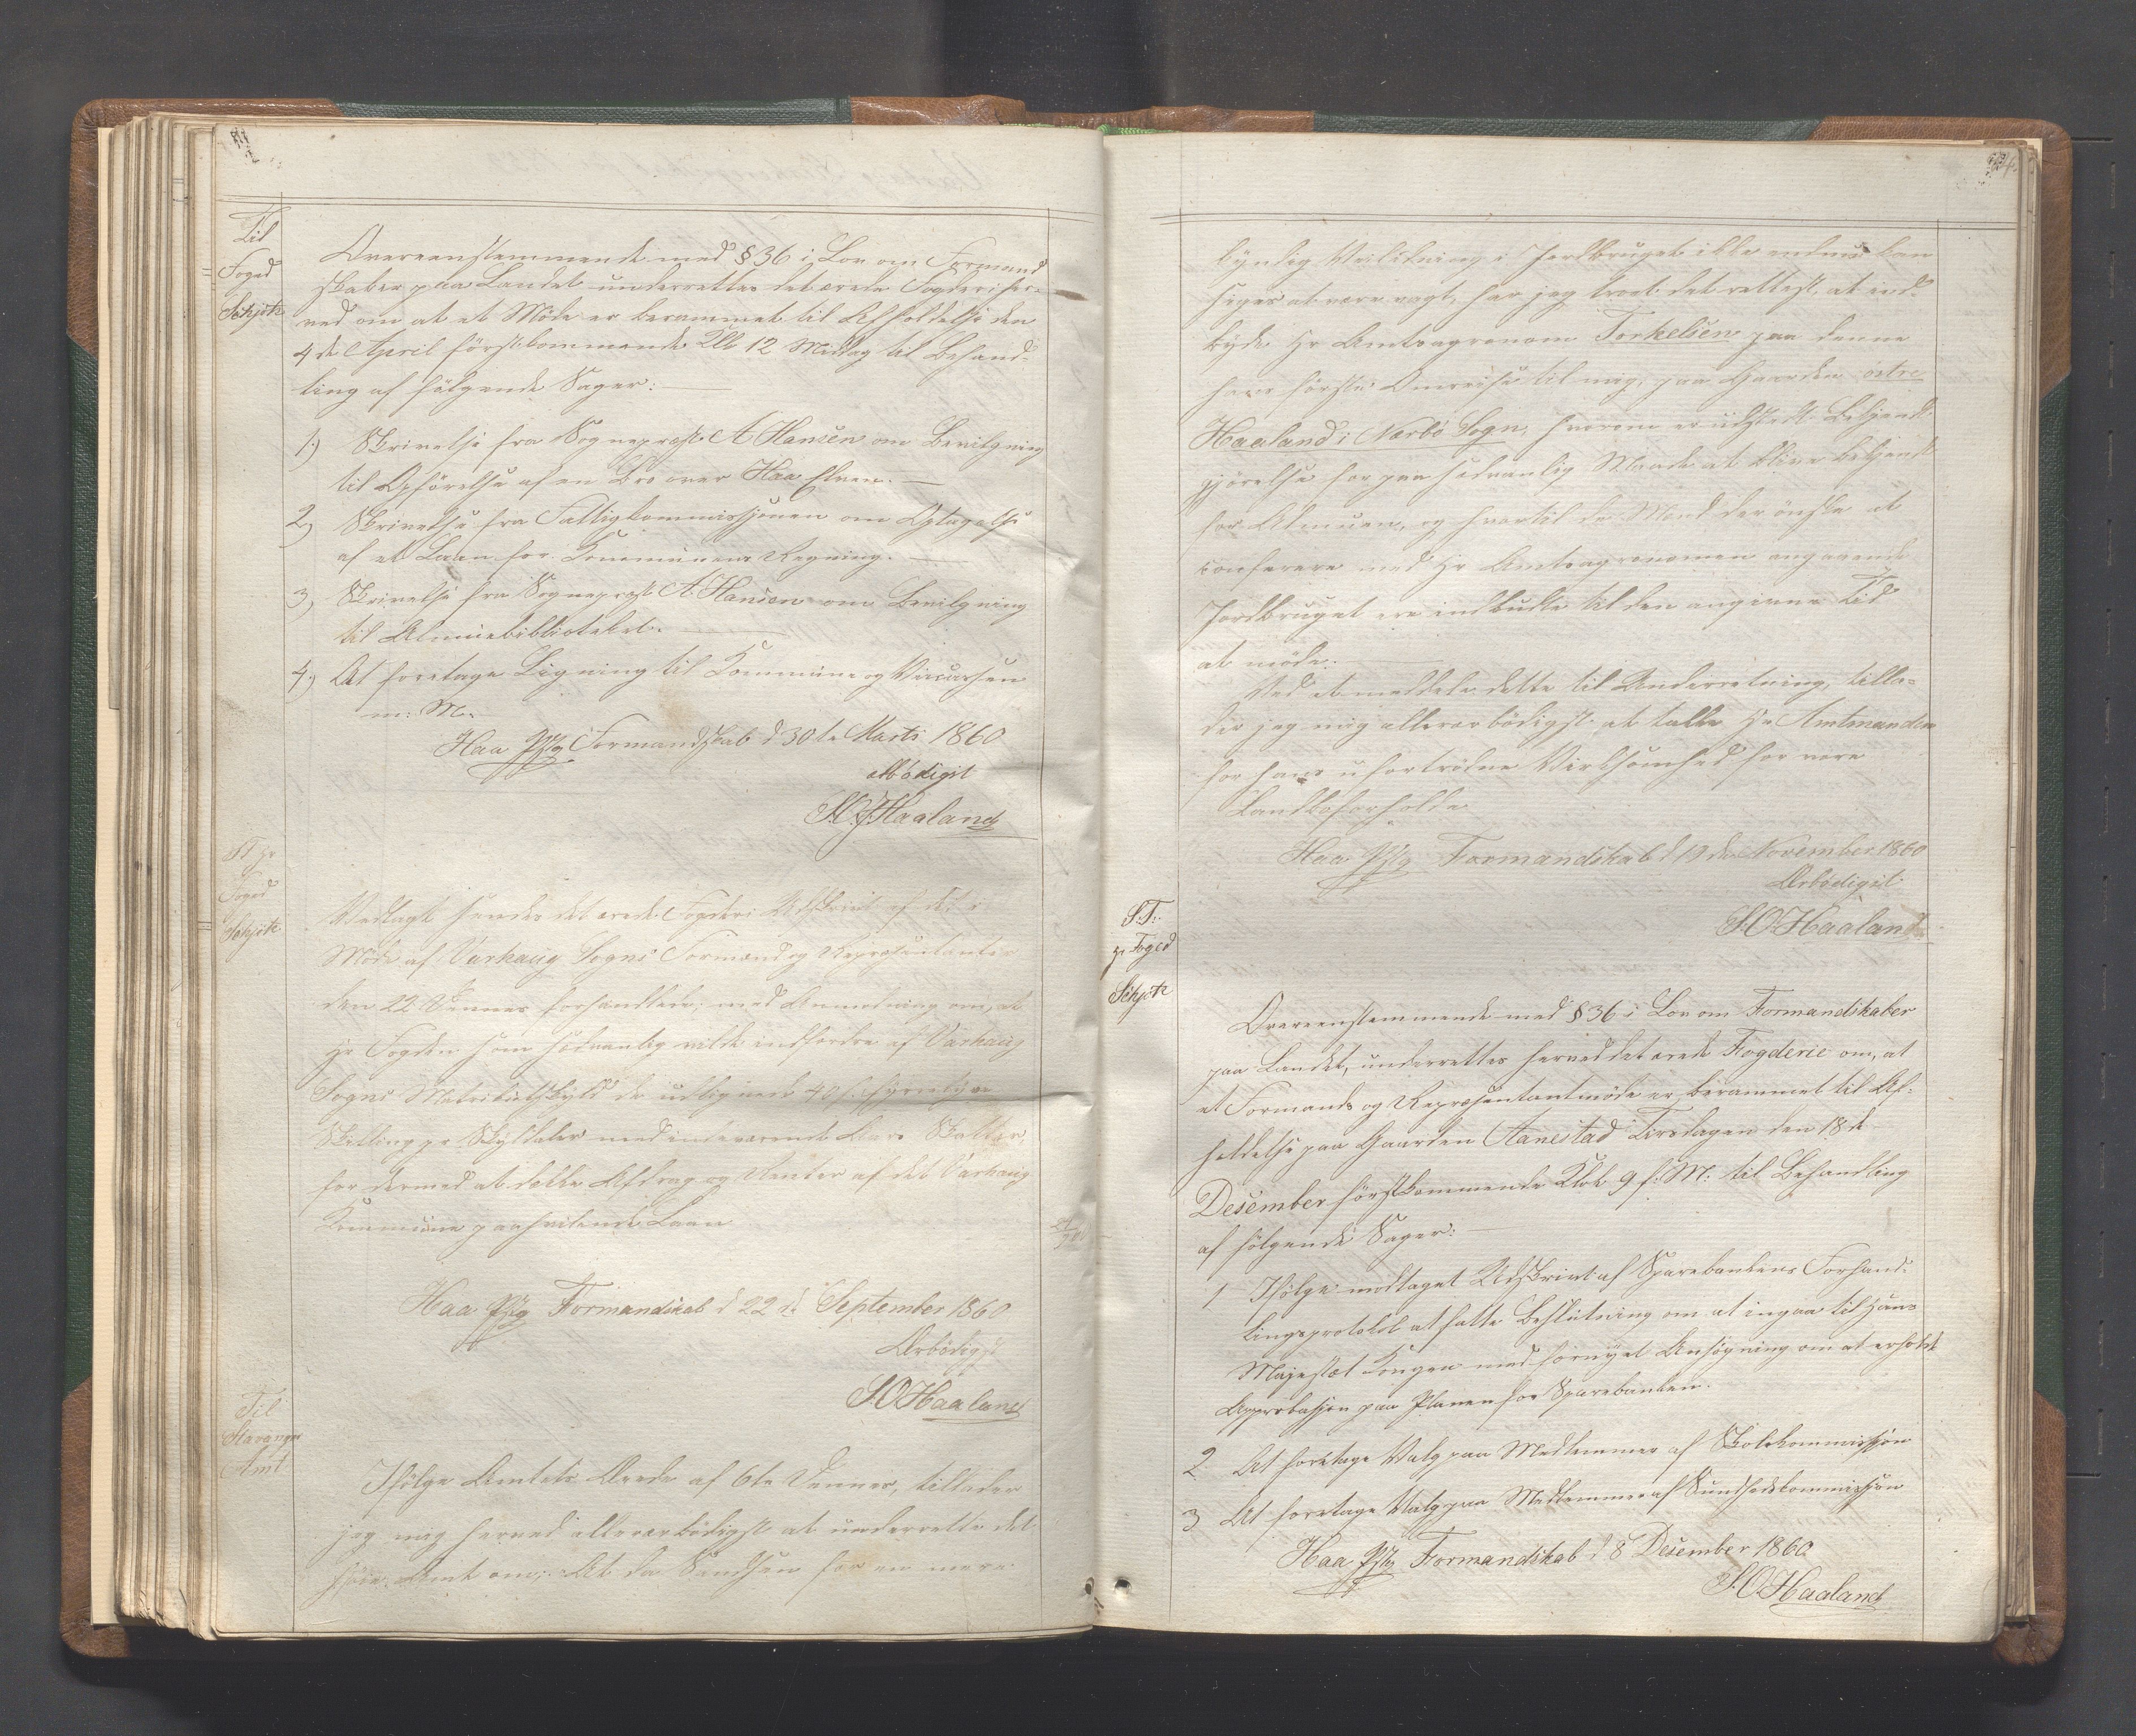 Til
Foged
Schjøtz
Overeenstemmende med § 36 i Lov om Formand
skaber paa Landet underrettes det ærede Fogderi her-
ved om at et Møde er berammet til Afholdelse den
4de April førstkommende Kl 12 Middag til Behand-
ling af følgende Sager:
1) Skrivelse fra Sognepræst A Hansen om Bevilgning
til Opførelse af en Bro over Haa Elven.
2) Skrivelse fra Fattigkommissjonen om Optagelse
af et Laan for Kommunens Regning.
3) Skrivelse fra Sognepræst A Hansen om Bevilgning
til Almuebibliotheket.
4) At foretage Ligning til Kommune og
m: M.
Haa Pstg Formandskab d 30te Marts 1860
ærbødigst
S. O. Haaland
S T Hr
Foged
Schjøtz
Vedlagt sendes det ærede Fogderi Udskrivt af det i
Møde af Varhaug Sogns Formænd og Repræsentanter
den 22 Dennes forhandlede; med Anmodning om, at
Hr Fogden som sædvanlig vilde indfordre af Varhaug
Sogns Matrikulskyld de udlignede 40 s: fyrretyve
Skilling pr Skylddaler med indeværende Aars Skatter,
for dermed at dække Afdrag og Renter af det Varhaug
Kommune paahvilende Laan
Haa Pstg Formandskab d 22de September 1860
Ærbødigst
S. O. Haaland
Til
Stavanger
Amt
Ifølge Amtets Ærede af 6te Dennes, tillader
jeg mig herved allerærbødigst at underrette det
høie Amt om; At da Sandsen for en mere
kyndig Veiledning i Jordbruget ikke endnu kan
siges at være vagt, har jeg troet det rettest at ind-
byde Hr Amtsagronom Torkelsen paa denne
hans første Omreise til mig, paa Gaarden østre
Haaland i Nærbø Sogn, hvorom er udstedt Bekjendt
gjørelse for paa sædvanlig Maade at blive bekjendt
for Almuen, og hvortil de Mænd der ønske at
conferere med Hr Amtsagronomen angaaende
Jordbruget ere indbudte til den angivne Tid
at møde.
Ved at meddele dette til Underretning, tilla-
der jeg mig allerærbødigst at takke Hr Amtmanden
for hans ufortrødne Virksomhed for vore
Landboforholde
Haa Pstg Formandskab d 19de November 1860
Ærbødigst
S. O. Haaland
S. T.
Hr Foged
Schjøtz
Overeenstemmende med § 36 i Lov om Formandskaber
paa Landet, underrettes herved det ærede Fogderie om, at
et Formands og Repræsentantmøde er berammet til Af-
holdelse paa Gaarden Aanestad Tirsdagen den 18de
Desember førstkommende Klok 9 f: M: til Behandling
af følgende Sager:
1 Ifølge modtaget Udskrivt af Sparebankens Forhand-
lingsprotokol at fatte Beslutning om at ingaa til Hans
Majestæt Kongen med fornyet Ansøgning om at erholde
Approbasjon paa Planen for Sparebanken.
2 At foretage Valg paa Medlemmer af Skolekommissjon
3 At foretage Valg paa Medlemmer af Sundhedskommissjon
Haa Pstg Formandskab d 8 Desember 1860
S. O. Haaland